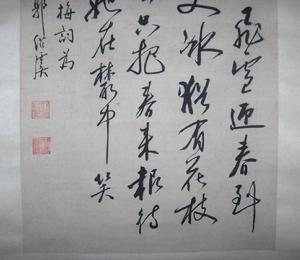 飛雪迎春到
丈冰猶有花枝
只把春来報待
她在叢中笑
梅詞為